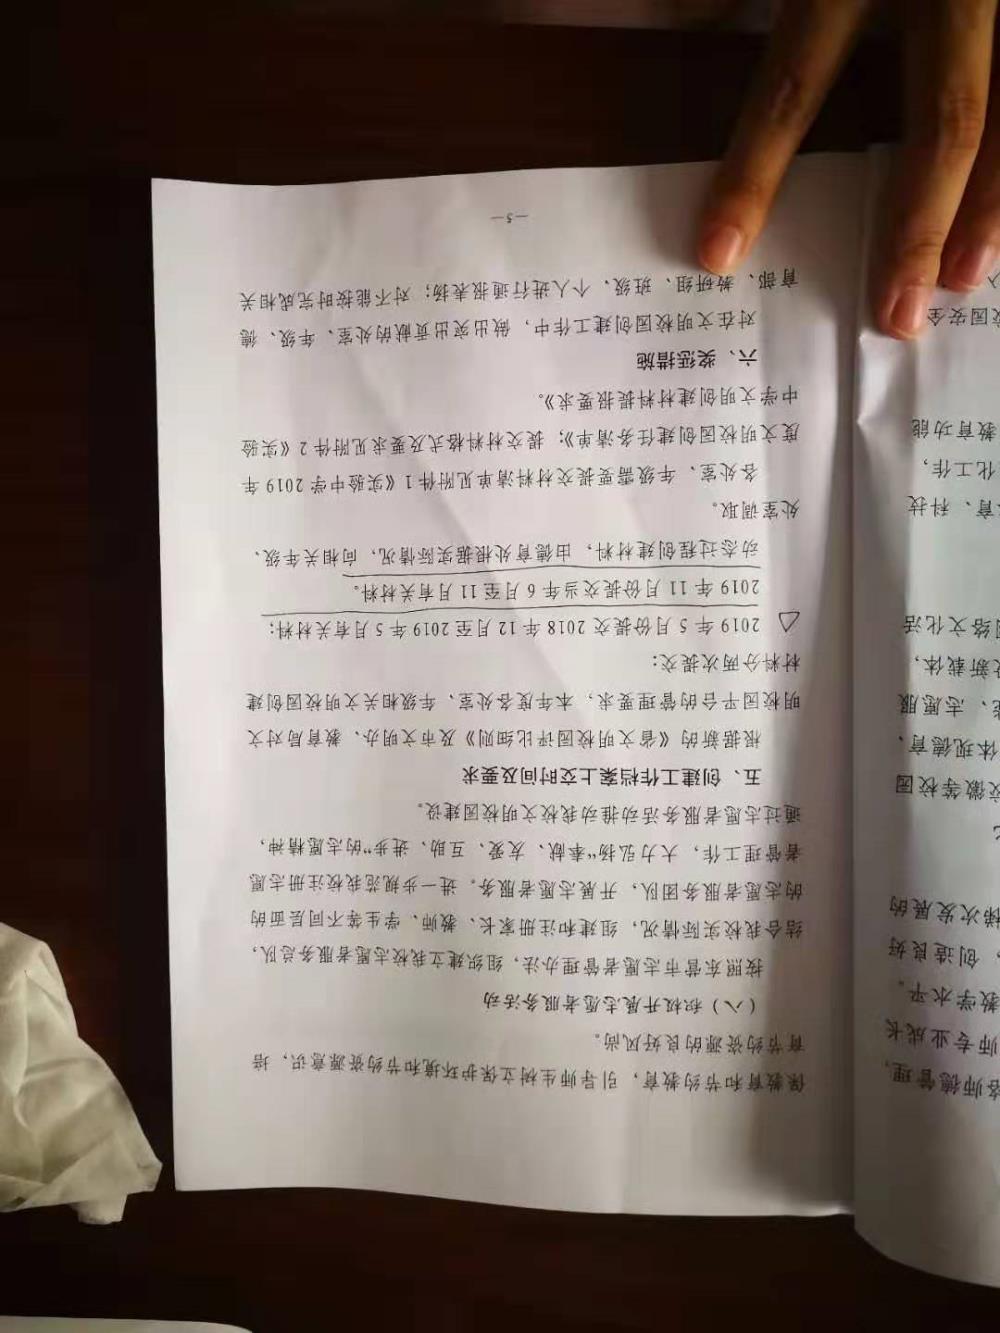 保教育和节约教育，引导师生树立保护环境和节约资源意识，培
育节约资源的良好风尚。
（八）积极开展志愿者服务活动
按照东营市志愿者管理办法，组织建立我校志愿者服务总队，
结合我校实际情况，组建和注册家长、教师、学生等不同层面的
的志愿者服务团队，开展志愿者服务。进一步规范我校注册志愿
者管理工作，大力弘扬“奉献、友爱、互助、进步”的志愿精神，
通过志愿者服务活动推动我校文明校园建设。
五、创建工作档案上交时间及要求
根据新的《省文明校园评比细则》及市文明办、教育局对文
明校园平台的管理要求，本年度各处室、年级相关文明校园创建
材料分两次提交：
2019 年 5 月份提交 2018 年 12 月至 2019 年 5 月有关材料；
2019 年 11 月份提交当年 6 月至 11 月有关材料。
动态过程创建材料，由德育处根据实际情况，向相关年级、
处室调取。
各处室、年级需要提交材料清单见附件 1《实验中学 2019 年
度文明校园创建任务清单》；提交材料格式及要求见附件 2《实验
中学文明创建材料提报要求》。
六、奖惩措施
对在文明校园创建工作中，做出突出贡献的处室、年级、德
育部、教研组、班级、个人进行通报表扬；对不能按时完成相关
—5—
师德管理，
师专业成长
教学水平。
，创造良好
梯次发展的
校徽等校园
体现德育、
、志愿服
新载体，
络文化活
育、科技
化工作，
教育功能
校园安全